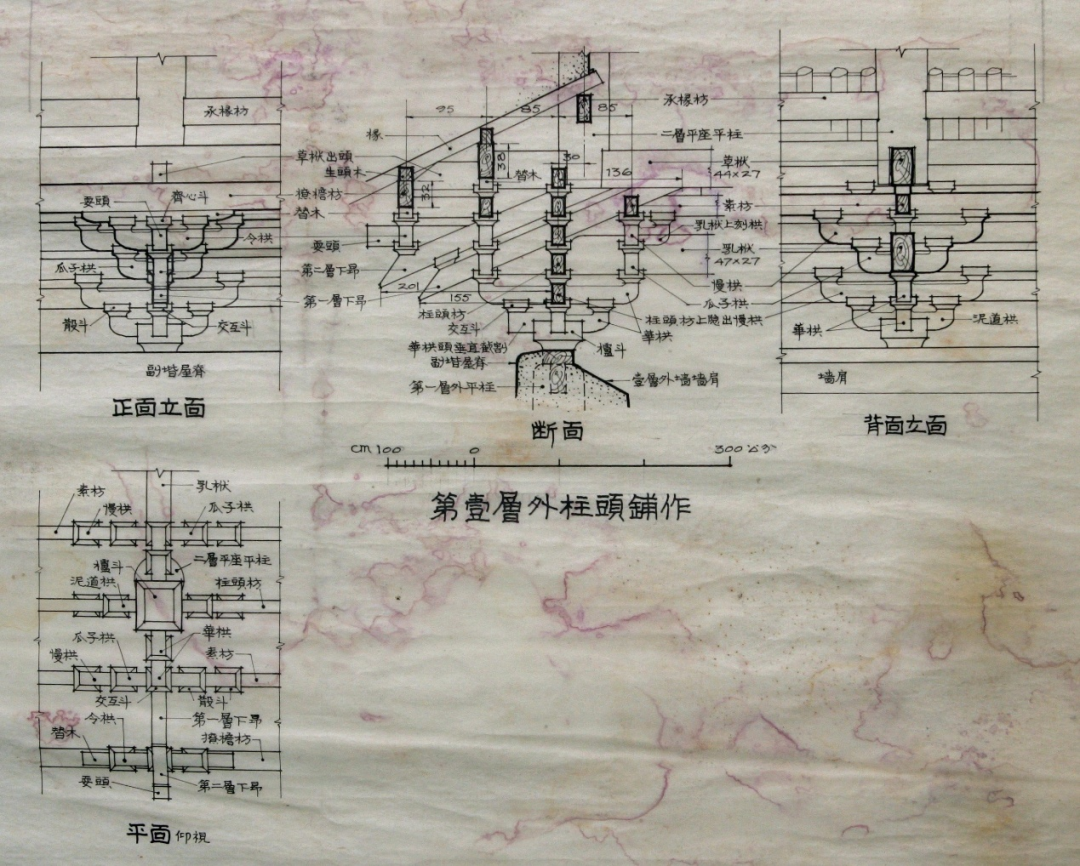 承椽枋
草栿出頭
生頭木
耍頭
齊心斗
撩檐枋
替木
令栱
瓜子栱
散斗
交互斗
副堦屋脊
正面立面
95
85
85
承椽枋
椽
二層平座平柱
38
30
替木
136
草栿
44×27
32
素枋
乳栿上刻栱
耍頭
乳栿
47×27
第二層下昂
慢栱
201
155
第一層下昂
瓜子栱
柱頭枋
柱頭枋上隐出慢栱
交互斗
華栱
華栱頭垂直截割
櫨斗
副堦屋脊
第一層外平柱
壹層外墙墙肩
断面
華栱
泥道栱
墙肩
背面立面
cm 100
0
300 公分
第壹層外柱頭鋪作
素枋
乳栿
慢栱
瓜子栱
二層平座平柱
櫨斗
泥道栱
柱頭枋
瓜子栱
華栱
慢栱
素枋
交互斗
散斗
令栱
第一層下昂
替木
撩檐枋
耍頭
第二層下昂
平面 仰視